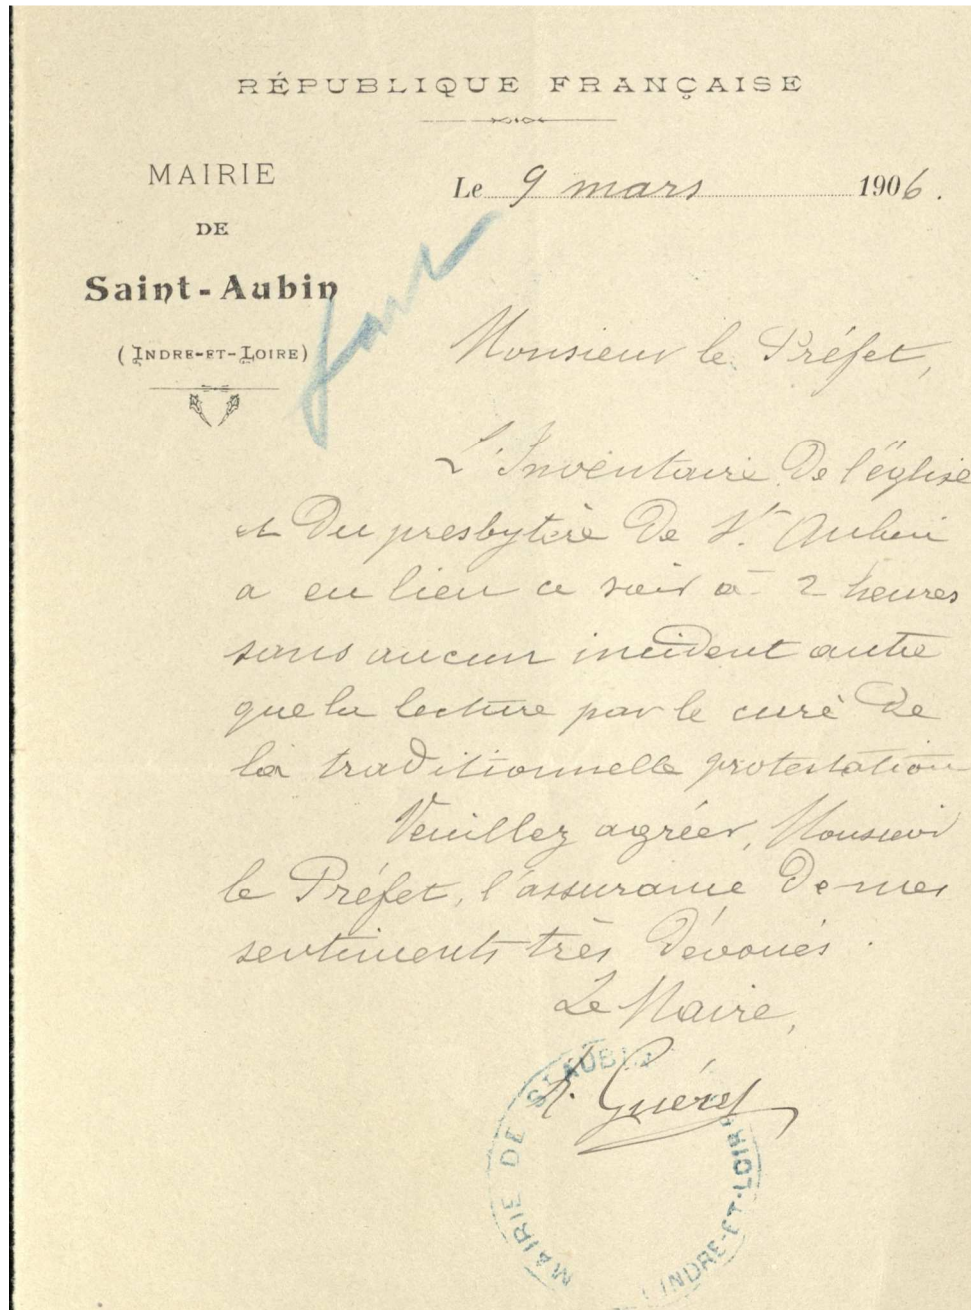 RÉPUBLIQUE FRANÇAISE
MAIRIE
DE
Saint-Aubin
(INDRE-ET-LOIRE)
Le 9 mars 1906.
Monsieur le Préfet,
L'Inventaire de l'église
et du presbytère de St. Aubin
a eu lieu ce soir à 2 heures
sans aucun incident autre
que la lecture par le curé de
la traditionnelle protestation
Veuillez agréer, Monsieur
le Préfet, l'assurance de mes
sentiments très dévoués.
Le Maire,
MAIRIE DE ST AUBIN
INDRE-ET-LOIRE